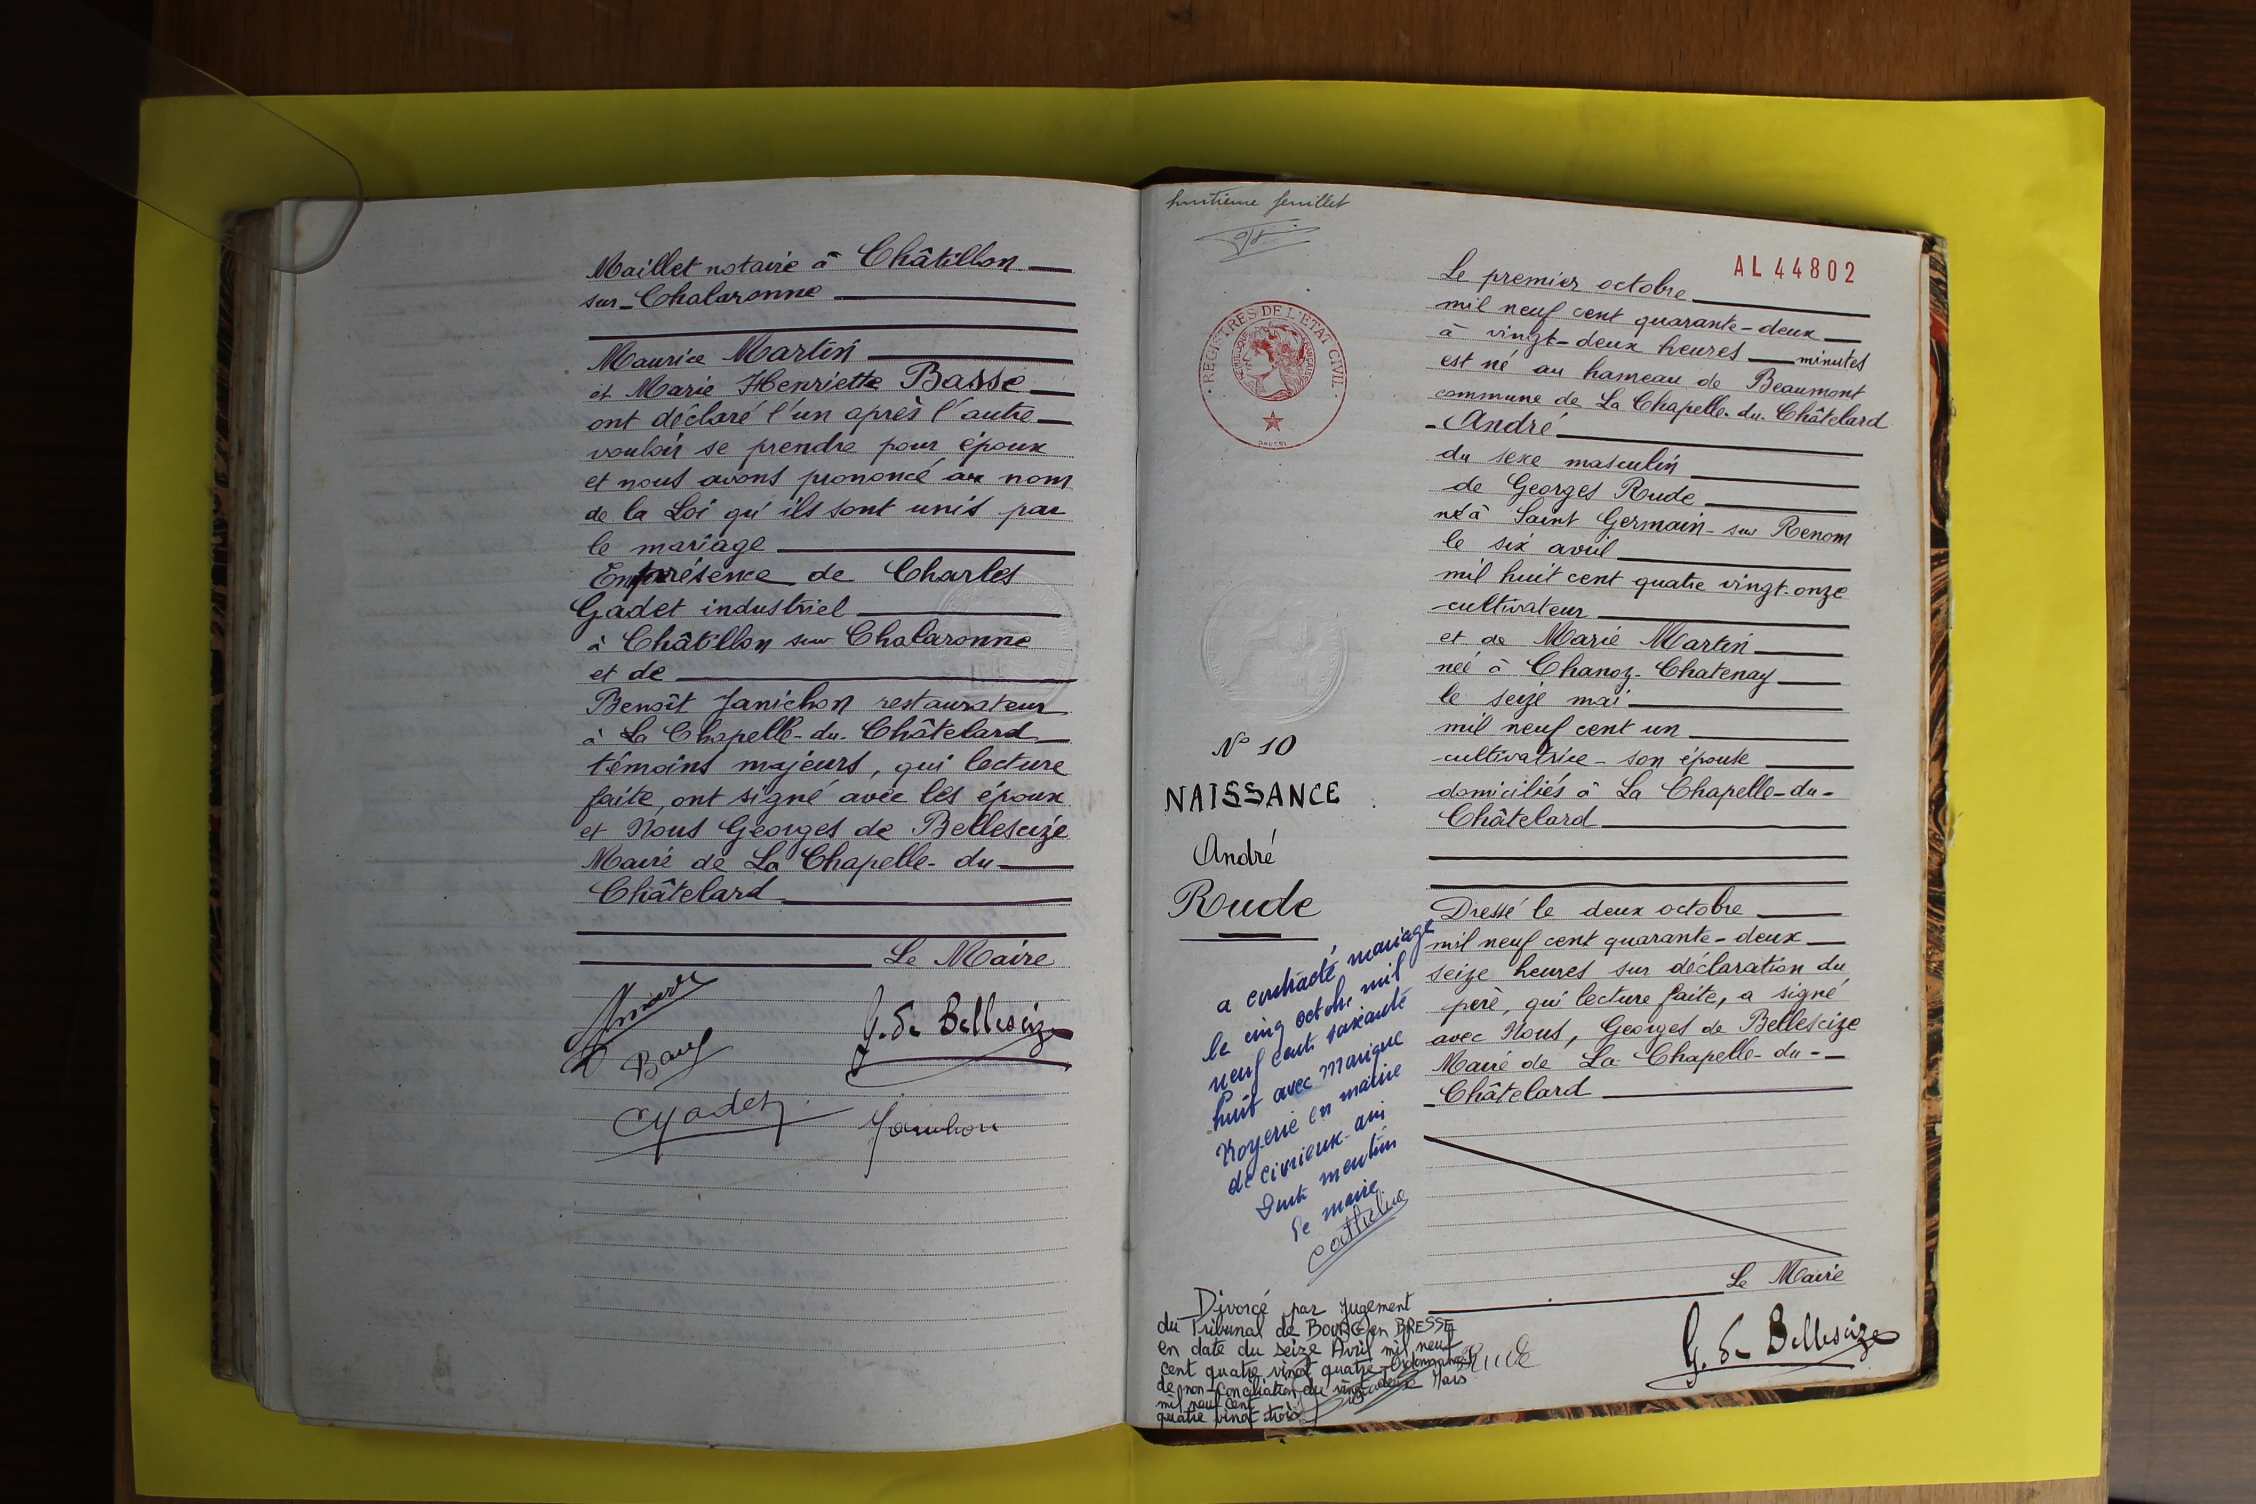 Maillet notaire à Châtillon
sur-Chalaronne
Maurice Martin
et Marie Henriette Basse
ont déclaré l'un après l'autre
vouloir se prendre pour époux
et nous avons prononcé au nom
de la Loi qu'ils sont unis par
le mariage
En présence de Charles
Gadet industriel
à Châtillon sur Chalaronne
et de
Benoît Janichon restaurateur
à La Chapelle-du-Châtelard
témoins majeurs, qui lecture
faite, ont signé avec les époux
et Nous Georges de Bellescize
Maire de La Chapelle-du
Châtelard
Le Maire
G. de Bellescize
huitième feuillet
REGISTRES DE L'ETAT CIVIL
N° 10
NAISSANCE
André
Rude
a contracté mariage
le cinq octobre mil
neuf cent soixante
huit avec Monique
Noyerie en mairie
de civrieux-ain
Dont mention
Le maire
Divorcé par Jugement
du Tribunal de BOURG en BRESSE
en date du seize Avril mil neuf
cent quatre vingt quatre - Ordonnance
de non-conciliation du vingt deux Mars
mil neuf cent
quatre vingt trois
AL 44802
Le premier octobre
mil neuf cent quarante-deux
à vingt-deux heures minutes
est né au hameau de Beaumont
commune de La Chapelle-du-Châtelard
André
du sexe masculin
de Georges Rude
né à Saint Germain-sur Renom
le six avril
mil huit cent quatre vingt-onze
cultivateur
et de Marie Martin
née à Chanoz-Chatenay
le seize mai
mil neuf cent un
cultivatrice - son épouse
domiciliés à La Chapelle-du-
Châtelard
Dressé le deux octobre
mil neuf cent quarante-deux
seize heures sur déclaration du
père, qui lecture faite, a signé
avec Nous, Georges de Bellescize
Maire de La Chapelle-du-
Châtelard
Le Maire
Rude
G. de Bellescize